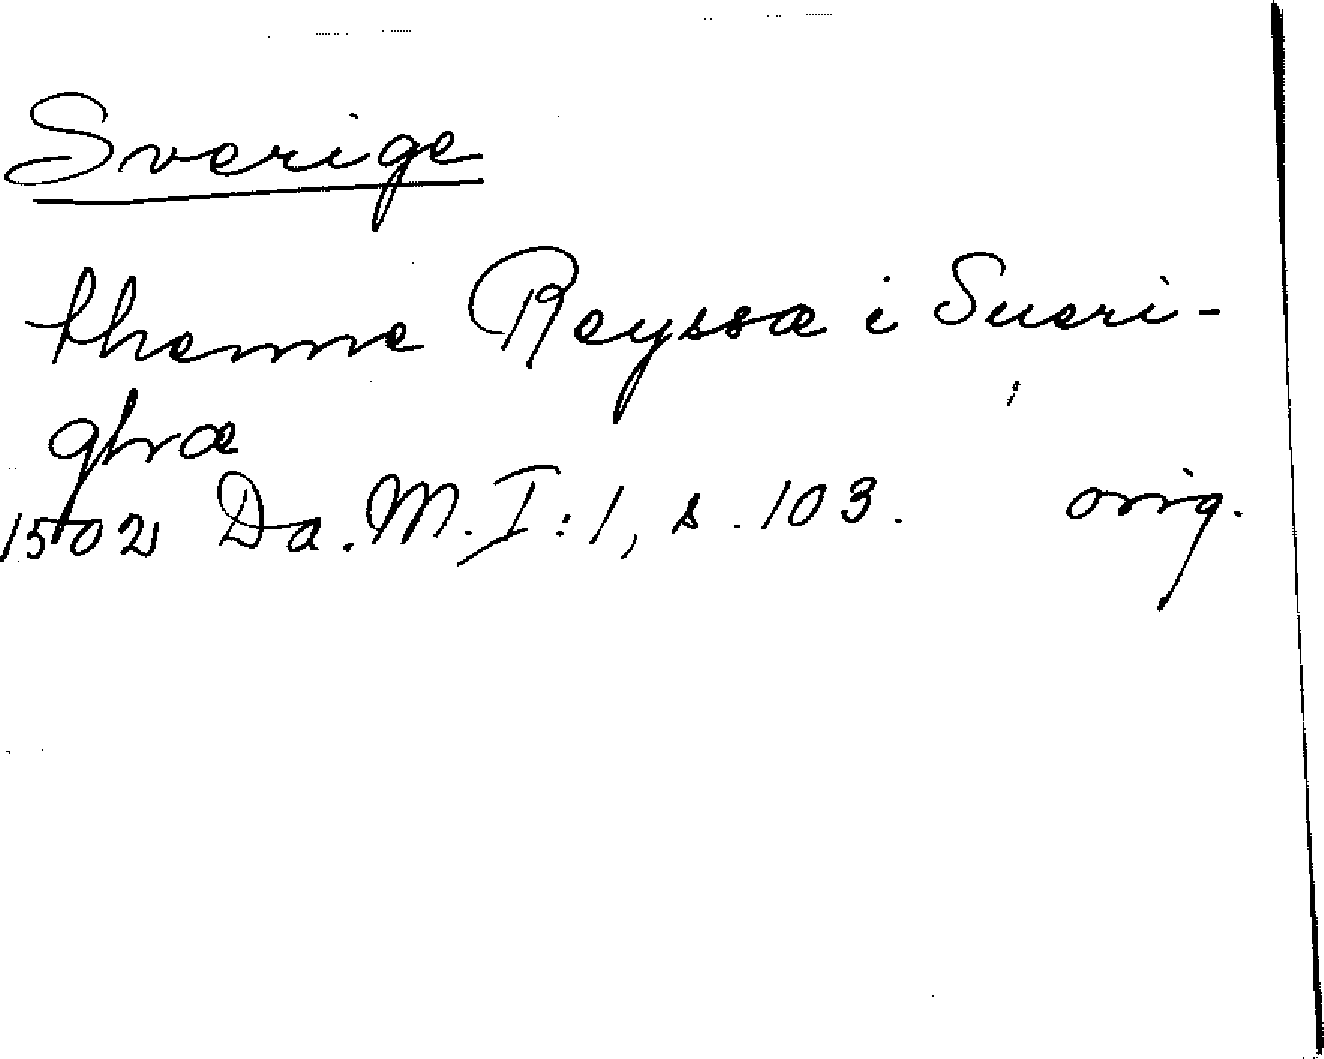 Sverige
thenne Reyssæ i Sueri-
ghæ
1502 Da. M. I:1, s. 103. orig.